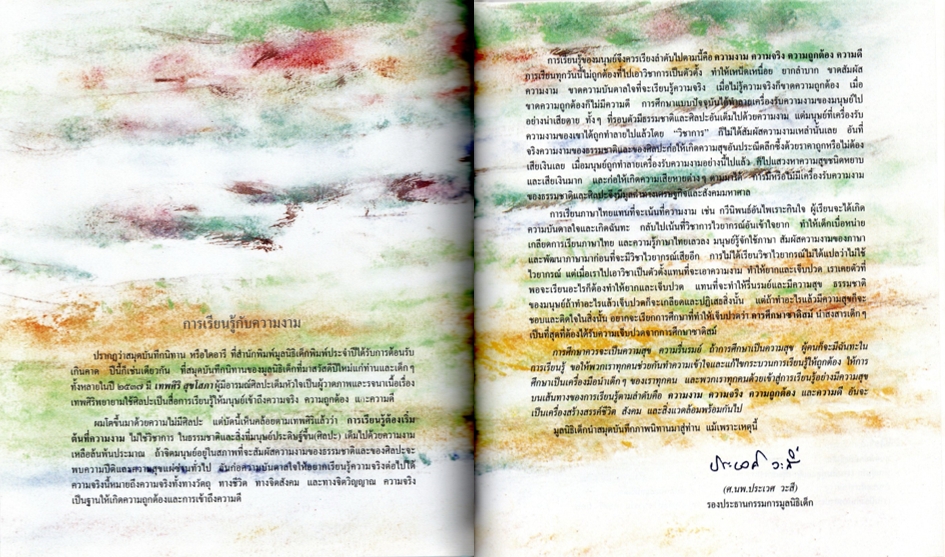 การเรียนรู้กับความงาม
ปรากฏว่าสมุดบันทึกนิทาน หรือไดอารี่ ที่สำนักพิมพ์มูลนิธิเด็กพิมพ์ประจำปีได้รับการต้อนรับ
เกินคาด ปีนี้ก็เช่นเดียวกัน ที่สมุดบันทึกนิทานของมูลนิธิเด็กที่มาสวัสดีปีใหม่แก่ท่านและเด็กๆ
ทั้งหลายในปี ๒๕๓๗ มี เทพศิริ สุขโสภา ผู้มีอารมณ์ศิลปะเต็มหัวใจเป็นผู้วาดภาพและรจนาเนื้อเรื่อง
เทพศิริพยายามใช้ศิลปะเป็นสื่อการเรียนรู้ให้มนุษย์เข้าถึงความจริง ความถูกต้อง และความดี
ผมโตขึ้นมาด้วยความไม่มีศิลปะ แต่บัดนี้เห็นคล้อยตามเทพศิริแล้วว่า การเรียนรู้ต้องเริ่ม
ต้นที่ความงาม ไม่ใช่วิชาการ ในธรรมชาติและสิ่งที่มนุษย์ประดิษฐ์ขึ้น(ศิลปะ) เต็มไปด้วยความงาม
เหลือล้นพ้นประมาณ ถ้าจิตมนุษย์อยู่ในสภาพที่จะสัมผัสความงามของธรรมชาติและของศิลปะจะ
พบความปีติและความสุขแผ่ซ่านทั่วไป อันก่อความบันดาลใจให้อยากเรียนรู้ความจริงต่อไปได้
ความจริงนี้หมายถึงความจริงทั้งทางวัตถุ ทางชีวิต ทางจิตสังคม และทางจิตวิญญาณ ความจริง
เป็นฐานให้เกิดความถูกต้องและการเข้าถึงความดี
การเรียนรู้ของมนุษย์จึงควรเรียงลำดับไปตามนี้คือ ความงาม ความจริง ความถูกต้อง ความดี
การเรียนทุกวันนี้ไม่ถูกต้องที่ไปเอาวิชาการเป็นตัวตั้ง ทำให้เหน็ดเหนื่อย ยากลำบาก ขาดสัมผัส
ความงาม ขาดความบันดาลใจที่จะเรียนรู้ความจริง เมื่อไม่รู้ความจริงก็ขาดความถูกต้อง เมื่อ
ขาดความถูกต้องก็ไม่มีความดี การศึกษาแบบปัจจุบันได้ทำลายเครื่องรับความงามของมนุษย์ไป
อย่างน่าเสียดาย ทั้งๆ ที่รอบตัวมีธรรมชาติและศิลปะอันเต็มไปด้วยความงาม แต่มนุษย์ที่เครื่องรับ
ความงามของเขาได้ถูกทำลายไปแล้วโดย “วิชาการ” ก็ไม่ได้สัมผัสความงามเหล่านั้นเลย อันที่
จริงความงามของธรรมชาติและของศิลปะก่อให้เกิดความสุขอันประณีตลึกซึ้งด้วยราคาถูกหรือไม่ต้อง
เสียเงินเลย เมื่อมนุษย์ถูกทำลายเครื่องรับความงามอย่างนี้ไปแล้ว ก็ไปแสวงหาความสุขชนิดหยาบ
และเสียเงินมาก และก่อให้เกิดความเสียหายต่างๆ ตามมาได้ การมีหรือไม่มีเครื่องรับความงาม
ของธรรมชาติและศิลปะจึงมีมูลค่าทางเศรษฐกิจและสังคมมหาศาล
การเรียนภาษาไทยแทนที่จะเน้นที่ความงาม เช่น กวีนิพนธ์อันไพเราะกินใจ ผู้เรียนจะได้เกิด
ความบันดาลใจและเกิดฉันทะ กลับไปเน้นที่วิชาการไวยากรณ์อันเข้าใจยาก ทำให้เด็กเบื่อหน่าย
เกลียดการเรียนภาษาไทย และความรู้ภาษาไทยเลวลง มนุษย์รู้จักใช้ภาษา สัมผัสความงามของภาษา
และพัฒนาภาษามาก่อนที่จะมีวิชาไวยากรณ์เสียอีก การไม่ได้เรียนวิชาไวยากรณ์ไม่ได้แปลว่าไม่ใช้
ไวยากรณ์ แต่เมื่อเราไปเอาวิชาเป็นตัวตั้งแทนที่จะเอาความงาม ทำให้ยากและเจ็บปวด เราเคยตัวที่
พอจะเรียนอะไรก็ต้องทำให้ยากและเจ็บปวด แทนที่จะทำให้รื่นรมย์และมีความสุข ธรรมชาติ
ของมนุษย์ถ้าทำอะไรแล้วเจ็บปวดก็จะเกลียดและปฏิเสธสิ่งนั้น แต่ถ้าทำอะไรแล้วมีความสุขก็จะ
ชอบและติดใจในสิ่งนั้น อยากจะเรียกการศึกษาที่ทำให้เจ็บปวดว่า การศึกษาซาดิสม์ น่าสงสารเด็กๆ
เป็นที่สุดที่ต้องได้รับความเจ็บปวดจากการศึกษาซาดิสม์
การศึกษาควรจะเป็นความสุข ความรื่นรมย์ ถ้าการศึกษาเป็นความสุข ผู้คนก็จะมีฉันทะใน
การเรียนรู้ ขอให้พวกเราทุกคนช่วยกันทำความเข้าใจและแก้ไขกระบวนการเรียนรู้ให้ถูกต้อง ให้การ
ศึกษาเป็นเครื่องมือนำเด็กๆ ของเราทุกคน และพวกเราทุกคนด้วยเข้าสู่การเรียนรู้อย่างมีความสุข
บนเส้นทางของการเรียนรู้ตามลำดับคือ ความงาม ความจริง ความถูกต้อง และความดี อันจะ
เป็นเครื่องสร้างสรรค์ชีวิต สังคม และสิ่งแวดล้อมพร้อมกันไป
มูลนิธิเด็กนำสมุดบันทึกภาพนิทานมาสู่ท่าน แม้เพราะเหตุนี้
ประเวศ วะสี
(ศ.นพ.ประเวศ วะสี)
รองประธานกรรมการมูลนิธิเด็ก